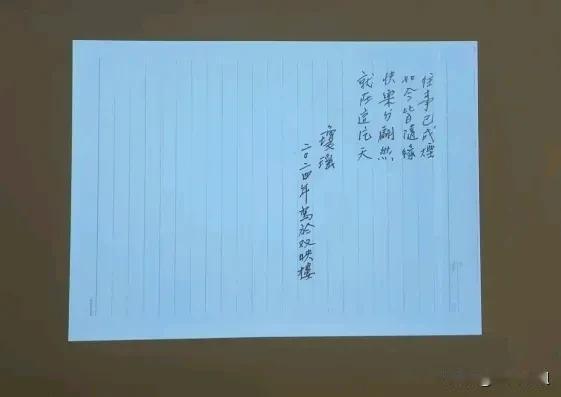 往事已成煙
如今皆隨緣
快樂翩然
就在這天
瓊瑤
二〇二四年寫於双映樓